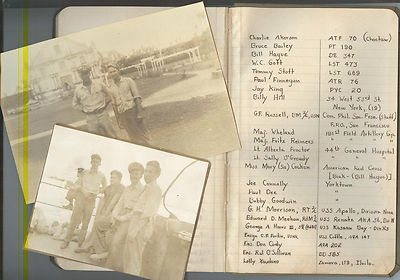 Charlie Akerson ATF 70 (Choctaw)
Bruce Bailey PT 190
Bill Hague DE 347
W.C. Goft LST 473
Tommy Stott LST 689
Paul Finnegan ATR 76
Jay King PYC 20
Billy Hill 34 West 53rd St.
New York, (19)
G.F. Russell, USN Com. Phil. Sea Fron. (Staff)
F.P.O., San Francisco
Maj. Wheland 181st Field Artillery Gp.
Maj. Fritz Reiners " "
Lt. Alberta Proctor 44th General Hospital
Lt. Sally O'Grady " "
Miss Mary (Sa) American Red Cross
(Bill Hague)
Joe Connally Yorktown
Paul Dee "
Bobby Goodwin "
G. H. Morrison, RT USS Apollo, Division Nine
Edward D. Meehan, USS Renate AKA 36, Div
George A. Harris USS Kasaan Bay -
Ensign C.R. USS Cottle, APA 147
Ens. Don Cody APA 202
Ens. Kit O'Sullivan DD 585
Letty Iloilo.